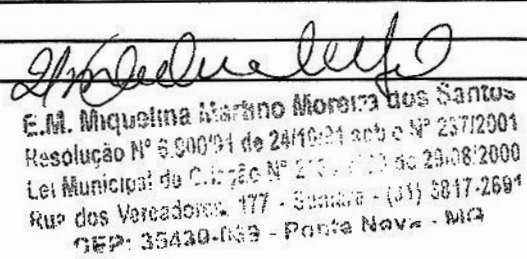 E.M. Miquelina Martino Moreira dos Santos
Resolução Nº 6.900/91 de 24/10/91 Nº 237/2001
Lei Municipal de Criação Nº de 29/08/2000
Rua dos Vereadores, 177 - - (31) 3817-2691
CEP: 35430- - Ponte Nova - MG